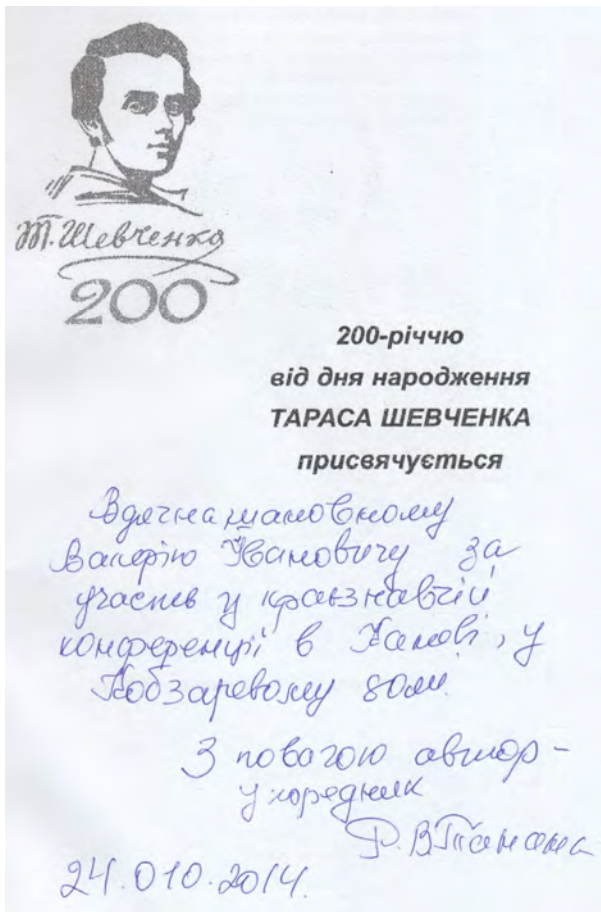 Т. Шевченко
200
200-річчю
від дня народження
ТАРАСА ШЕВЧЕНКА
присвячується
Вдячна шановному
Валерію Івановичу за
участь у краєзнавчій
конференції в Каневі, у
Кобзаревому домі.
З повагою автор-
упорядник
24.010.2014.